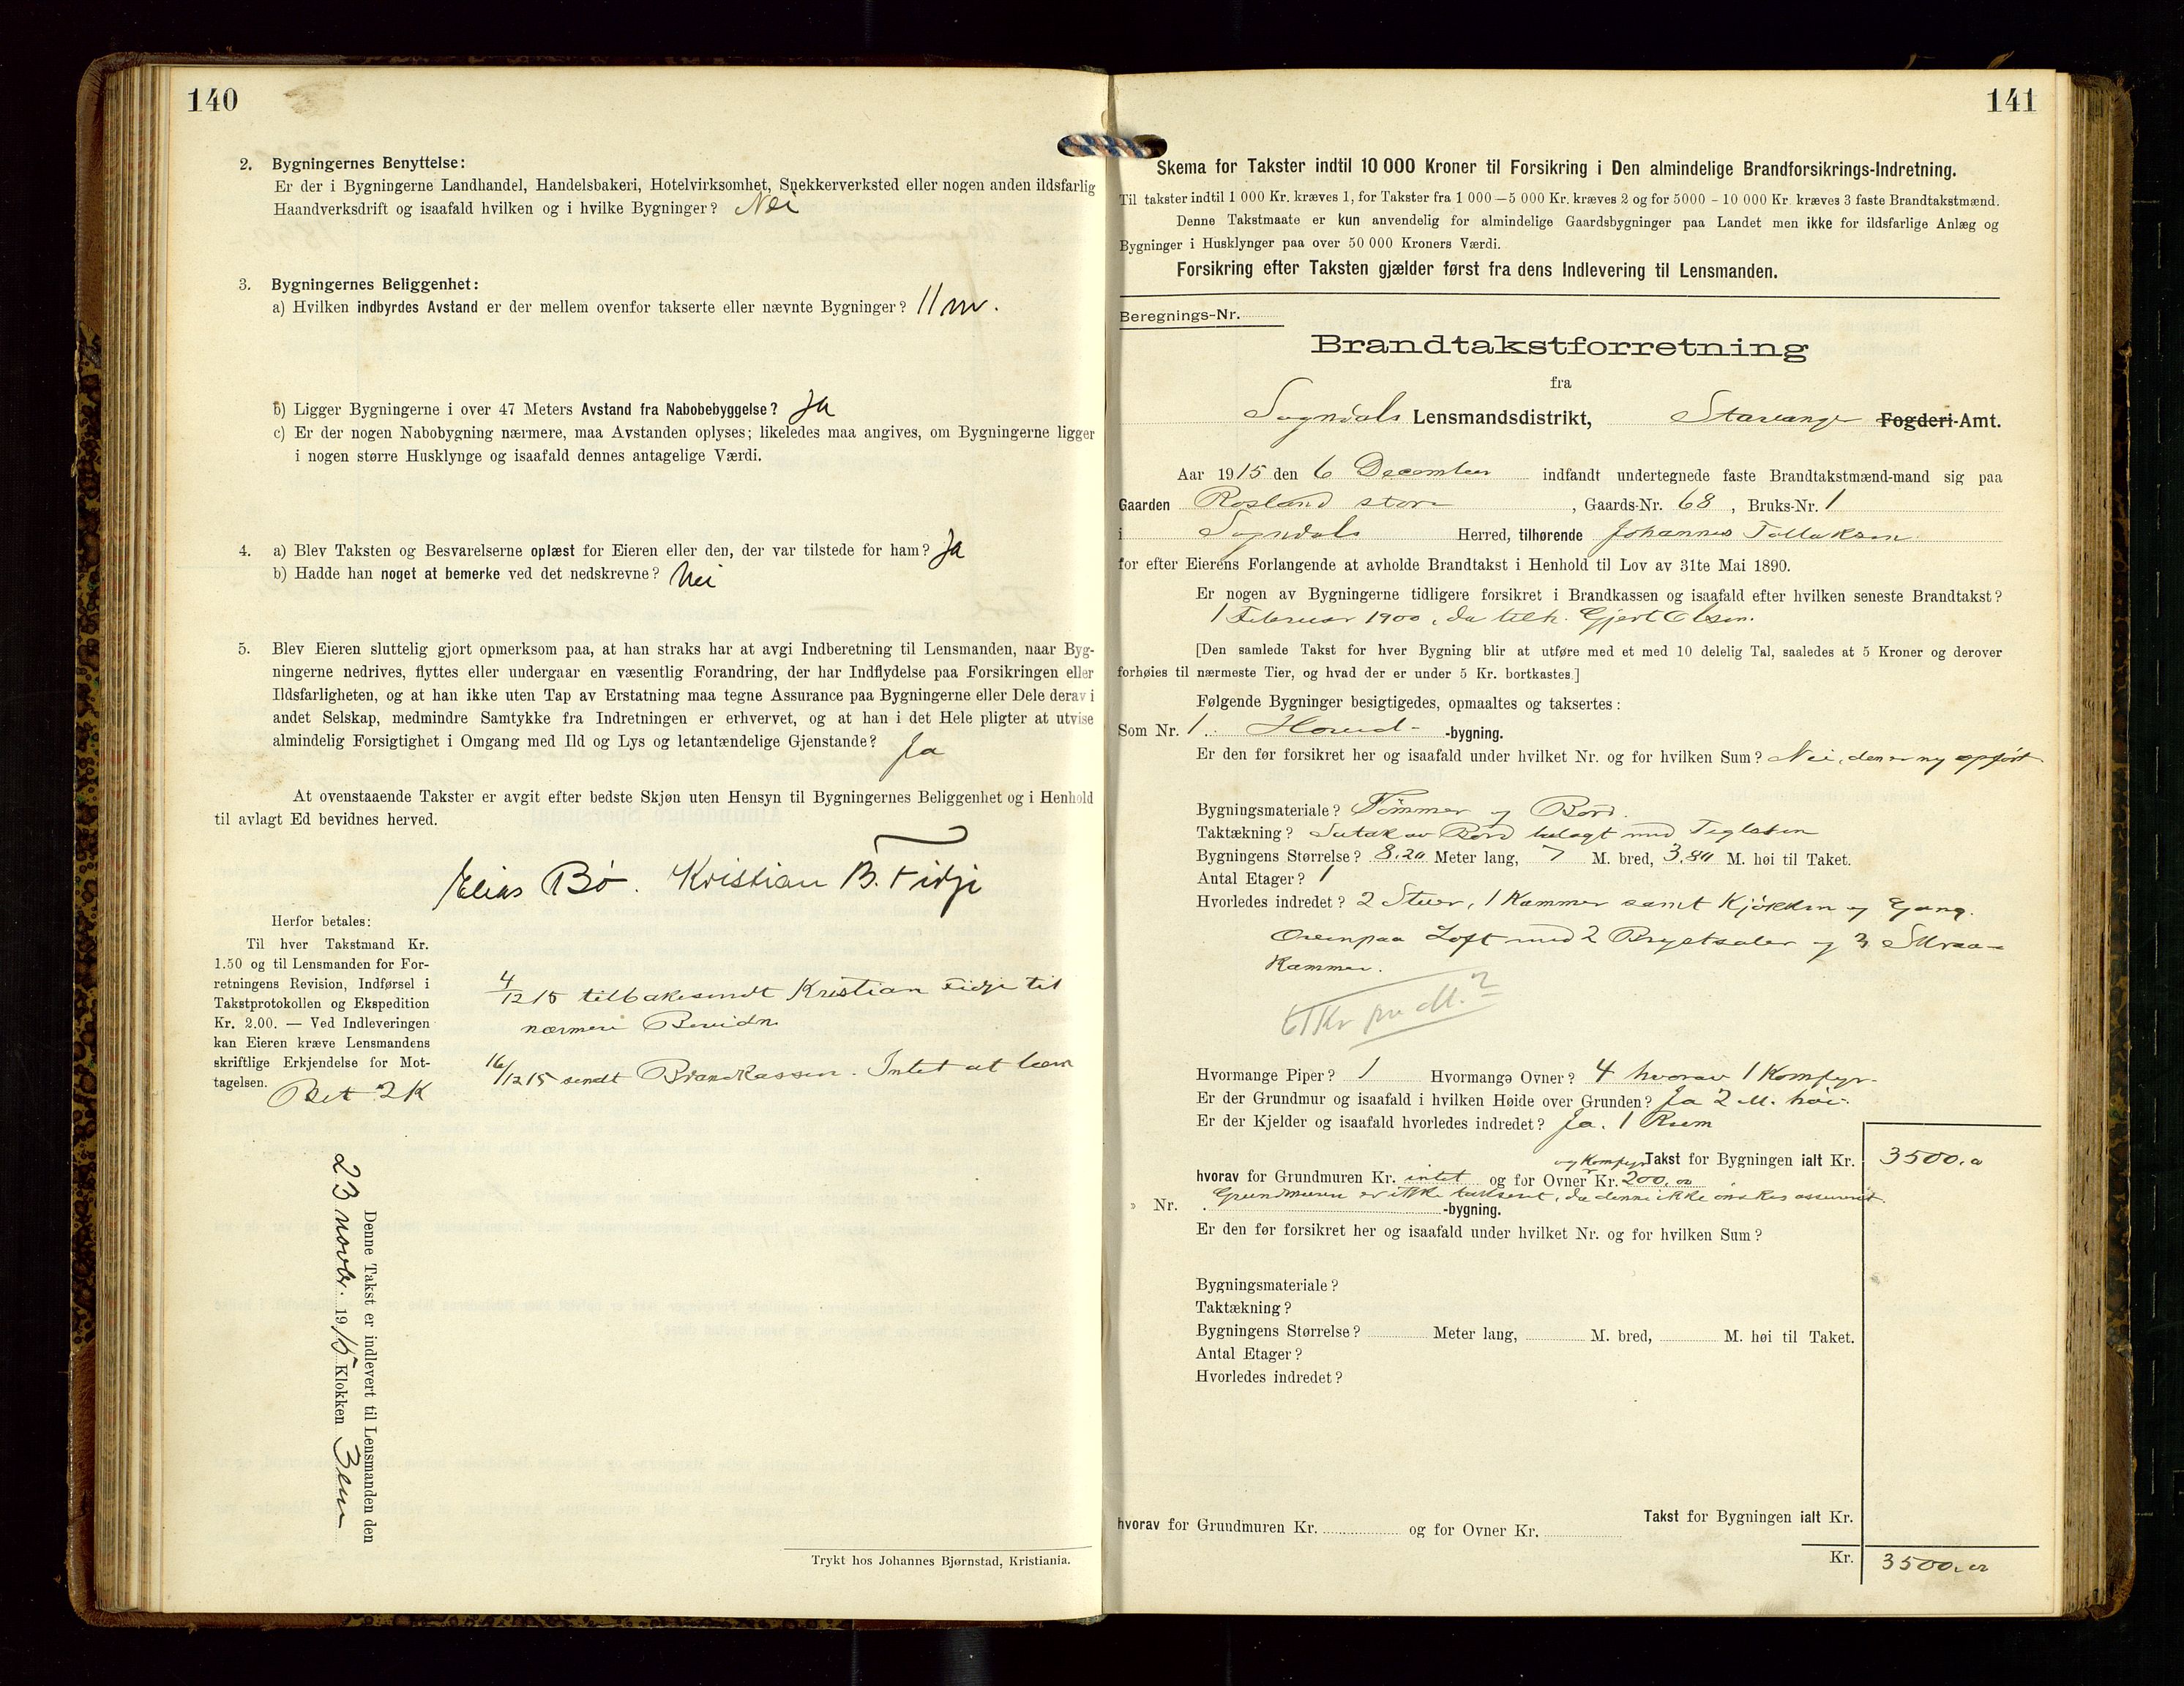 140
2. Bygningernes Benyttelse:
Er der i Bygningerne Landhandel, Handelsbakeri, Hotelvirksomhet, Snekkerverksted eller nogen anden ildsfarlig
Haandverksdrift og isaafald hvilken og i hvilke Bygninger? Nei
3. Bygningernes Beliggenhet:
a) Hvilken indbyrdes Avstand er der mellem ovenfor takserte eller nævnte Bygninger? 11 m.
b) Ligger Bygningerne i over 47 Meters Avstand fra Nabobebyggelse? Ja
c) Er der nogen Nabobygning nærmere, maa Avstanden oplyses; likeledes maa angives, om Bygningerne ligger
i nogen større Husklynge og isaafald dennes antagelige Værdi.
4. a) Blev Taksten og Besvarelserne oplæst for Eieren eller den, der var tilstede for ham? Ja
b) Hadde han noget at bemerke ved det nedskrevne? Nei
5. Blev Eieren sluttelig gjort opmerksom paa, at han straks har at avgi Indberetning til Lensmanden, naar Byg-
ningerne nedrives, flyttes eller undergaar en væsentlig Forandring, der har Indflydelse paa Forsikringen eller
Ildsfarligheten, og at han ikke uten Tap av Erstatning maa tegne Assurance paa Bygningerne eller Dele derav i
andet Selskap, medmindre Samtykke fra Indretningen er erhvervet, og at han i det Hele pligter at utvise
almindelig Forsigtighet i Omgang med Ild og Lys og letantændelige Gjenstande? Ja
At ovenstaaende Takster er avgit efter bedste Skjøn uten Hensyn til Bygningernes Beliggenhet og i Henhold
til avlagt Ed bevidnes herved.
Elias Bø. Kristian B. Fidje
Herfor betales:
Til hver Takstmand Kr.
1.50 og til Lensmanden for For-
retningens Revision, Indførsel i
Takstprotokollen og Ekspedition
Kr. 2.00. — Ved Indleveringen
kan Eieren kræve Lensmandens
skriftlige Erkjendelse for Mot-
tagelsen. Bet 2 K
4/12 15 tilbakesendt Kristian Fidje til
nærmere
16/12 15 sendt Brandkassen. Intet at
Denne Takst er indlevert til Lensmanden den
23 novbr. 1915 Klokken 3 em
Trykt hos Johannes Bjørnstad, Kristiania.
141
Skema for Takster indtil 10 000 Kroner til Forsikring i Den almindelige Brandforsikrings-Indretning.
Til takster indtil 1 000 Kr. kræves 1, for Takster fra 1 000—5 000 Kr. kræves 2 og for 5000 - 10 000 Kr. kræves 3 faste Brandtakstmænd.
Denne Takstmaate er kun anvendelig for almindelige Gaardsbygninger paa Landet men ikke for ildsfarlige Anlæg og
Bygninger i Husklynger paa over 50 000 Kroners Værdi.
Forsikring efter Taksten gjælder først fra dens Indlevering til Lensmanden.
Beregnings-Nr.
Brandtakstforretning
fra
Sogndals Lensmandsdistrikt, Stavanger Fogderi-Amt.
Aar 1915 den 6 December indfandt undertegnede faste Brandtakstmænd-mand sig paa
Gaarden Rosland store, Gaards-Nr. 68, Bruks-Nr. 1
i Sogndals Herred, tilhørende Johannes Tollaksen
for efter Eierens Forlangende at avholde Brandtakst i Henhold til Lov av 31te Mai 1890.
Er nogen av Bygningerne tidligere forsikret i Brandkassen og isaafald efter hvilken seneste Brandtakst?
1 Februar 1900, da tilh. Gjert Olsen.
[Den samlede Takst for hver Bygning blir at utføre med et med 10 delelig Tal, saaledes at 5 Kroner og derover
forhøies til nærmeste Tier, og hvad der er under 5 Kr. bortkastes.]
Følgende Bygninger besigtigedes, opmaaltes og taksertes:
Som Nr. 1. Hoved- -bygning.
Er den før forsikret her og isaafald under hvilket Nr. og for hvilken Sum? Nei, den er ny opført
Bygningsmateriale? Tømmer og Bord.
Taktækning? Sutak av Bord belagt med Teglsten
Bygningens Størrelse? 8,20 Meter lang, 7 M. bred, 3,80 M. høi til Taket.
Antal Etager? 1
Hvorledes indret? 2 Stuer, 1 Kammer samt Kjøkken og Gang.
Ovenpaa Loft med 2 Brystsaler og 3 Skraa-
Kammer.
61 Kr pr M.2
Hvormange Piper? 1 Hvormange Ovner? 4 hvorav 1 Komfyr
Er der Grundmur og isaafald i hvilken Høide over Grunden? Ja 2 M. høi.
Er der Kjelder og isaafald hvorledes indredet? Ja. 1 Rum
og Komfyr Takst for Bygningen ialt Kr. 3500.00
hvorav for Grundmuren Kr. intet og for Ovner Kr. 200.00
Grundmuren er ikke taksert, da denne ikke ønskes assurert.
» Nr. -bygning.
Er den før forsikret her og isaafald under hvilket Nr. og for hvilken Sum?
Bygningsmateriale?
Taktækning?
Bygningens Størrelse? Meter lang, M. bred, M. høi til Taket.
Antal Etager?
Hvorledes indredet?
Takst for Bygningen ialt Kr.
hvorav for Grundmuren Kr. og for Ovner Kr.
Kr. 3500.00